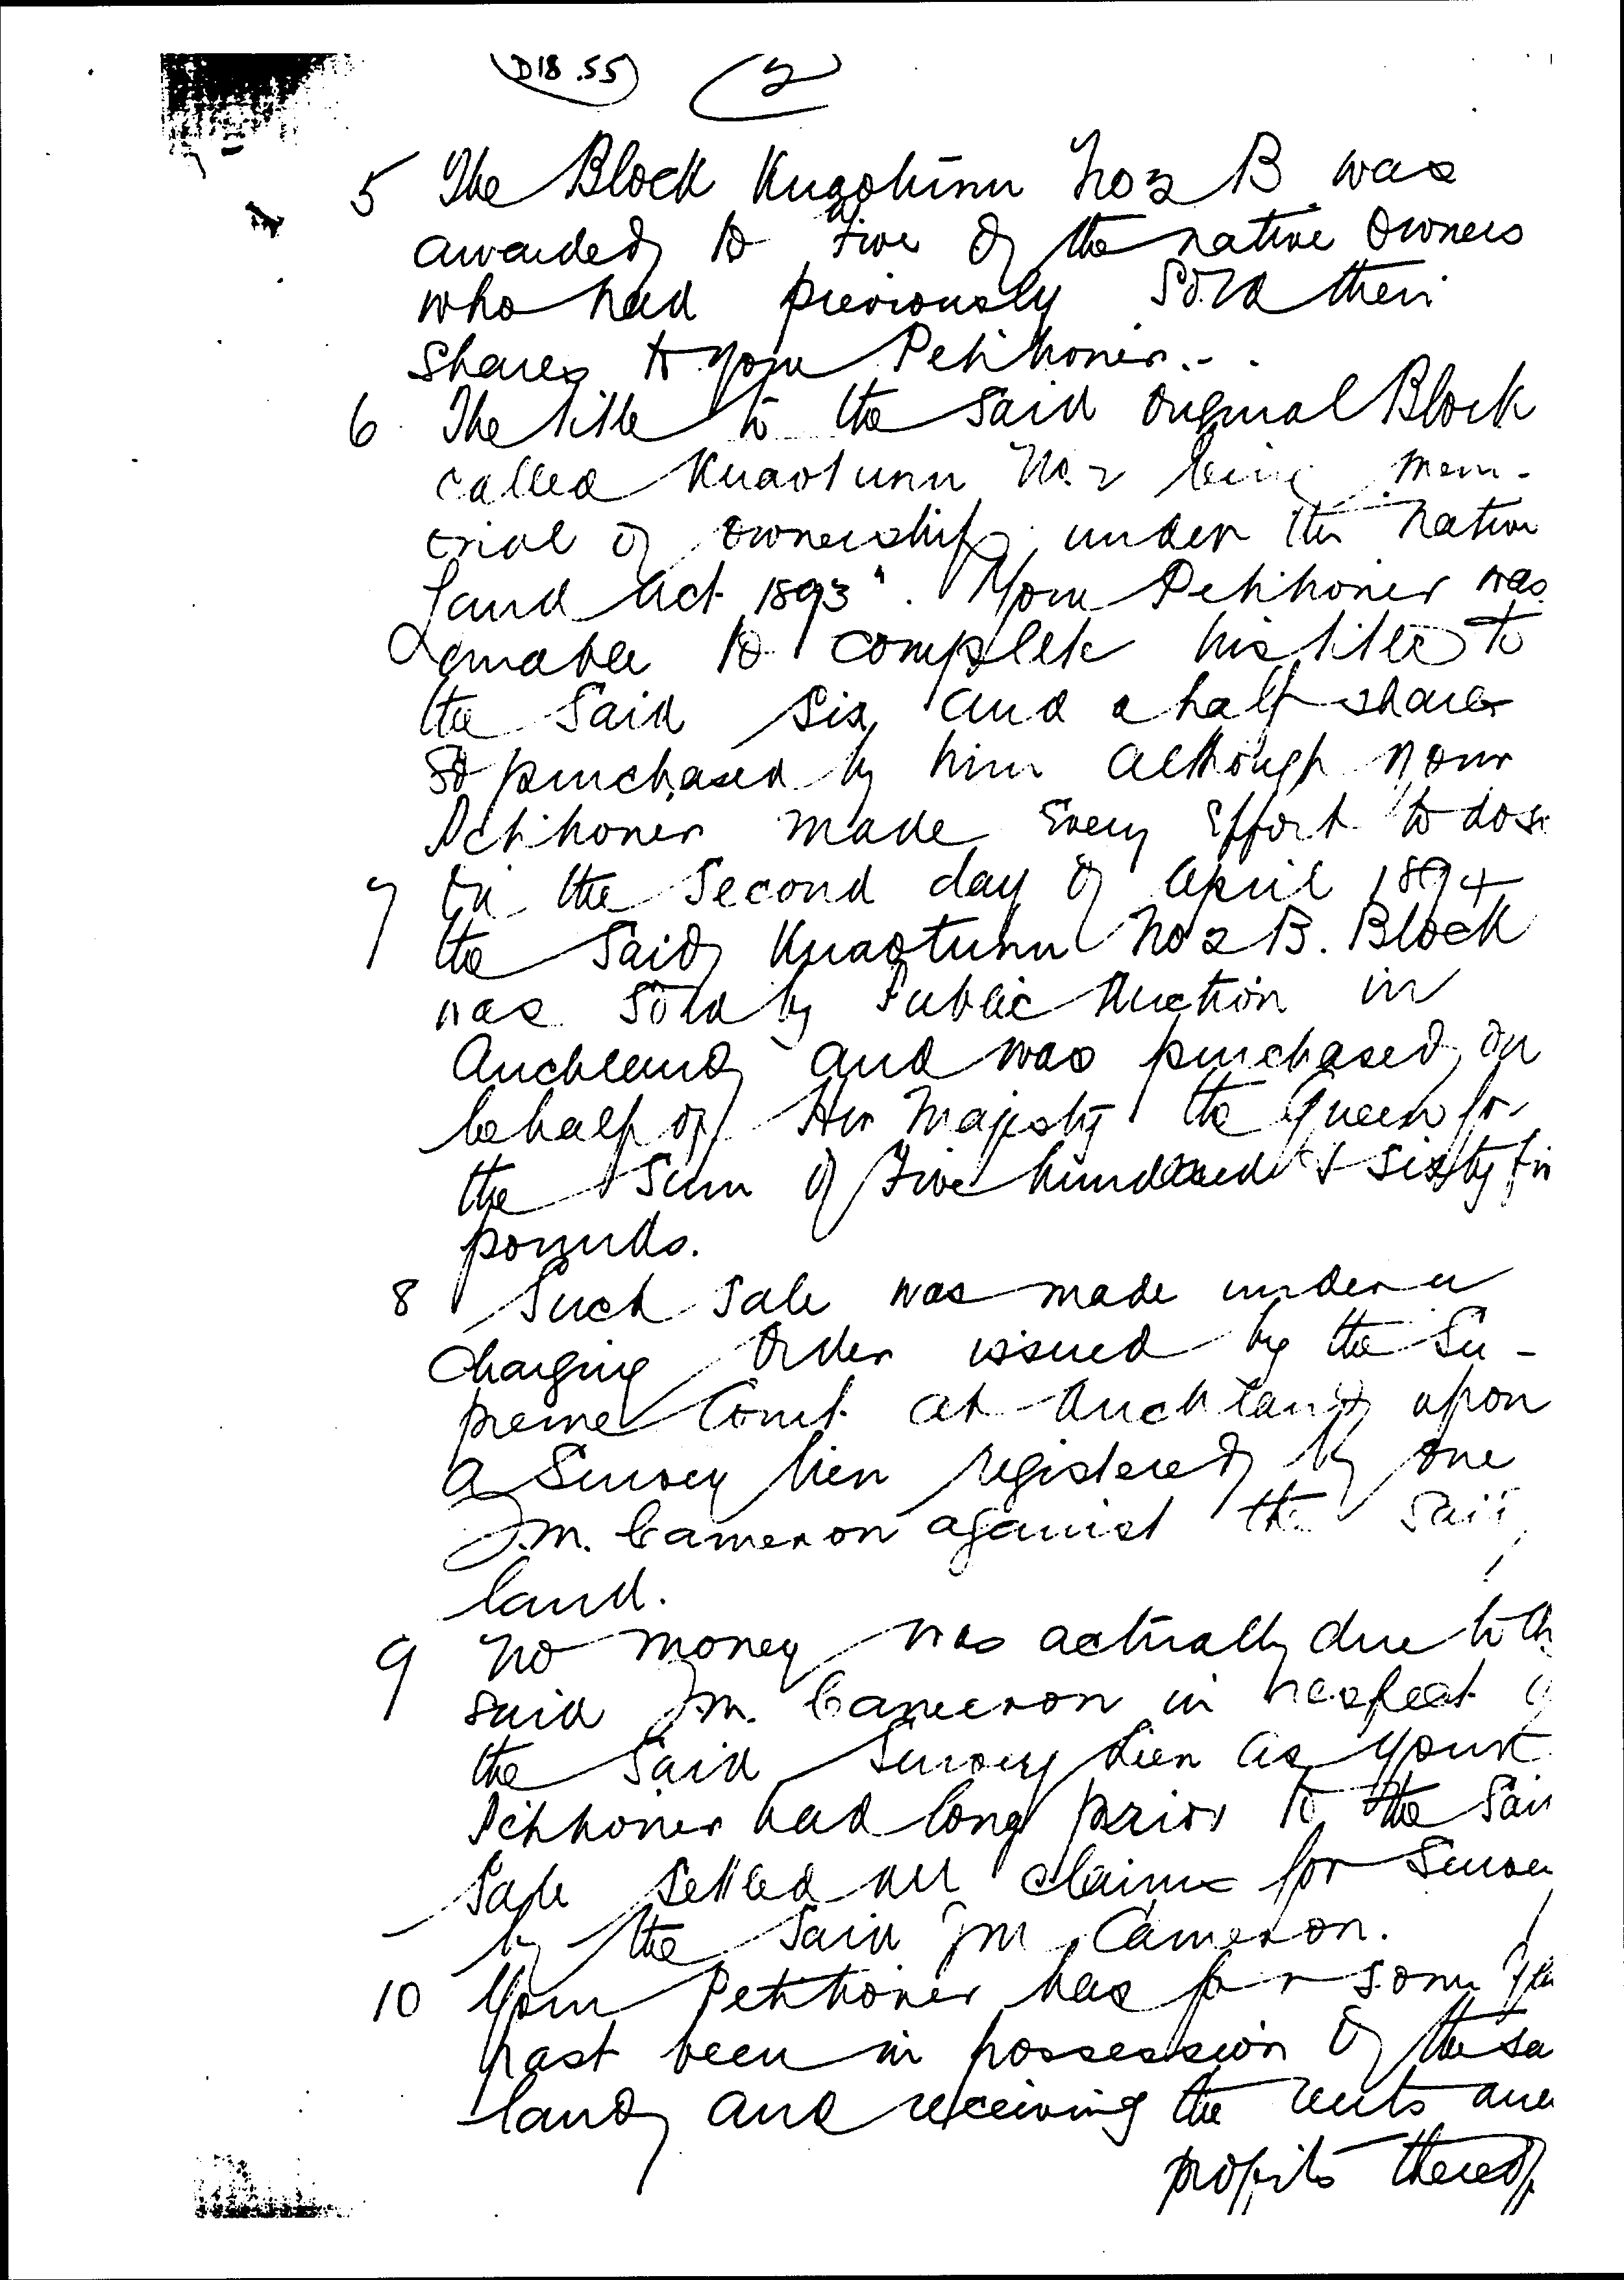 D18.55 2
5 The Block Kuaotunu No 2 B was
awarded to five of the native owners
who had previously sold their
shares to your Petitioner.
6 The title to the said original Block
called Kuaotunu No. 2 being mem-
orial of ownership under the "Native
Land Act 1893". Your Petitioner was
unable to complete his title to
the said six and a half shares
so purchased by him although your
Petitioner made every effort to do so
7 On the Second day of April 1894
the said Kuaotunu No 2 B. Block
was sold by Public Auction in
Auckland and was purchased on
behalf of Her Majesty the Queen for
the sum of Five hundred & sixty
pounds.
8 Such sale was made under a
charging order issued by the Su-
preme Court at Auckland upon
a survey lien registered by one
J.M. Cameron against the said
land.
9 No money was actually due to th
said J.M. Cameron in respect
the said survey lien as your
Petitioner had long prior to the sai
sale settled all claims for survey
by the said J M Cameron.
10 Your Petitioner has for some
past been in possession of the sa
land and receiving the rents and
profits thereof